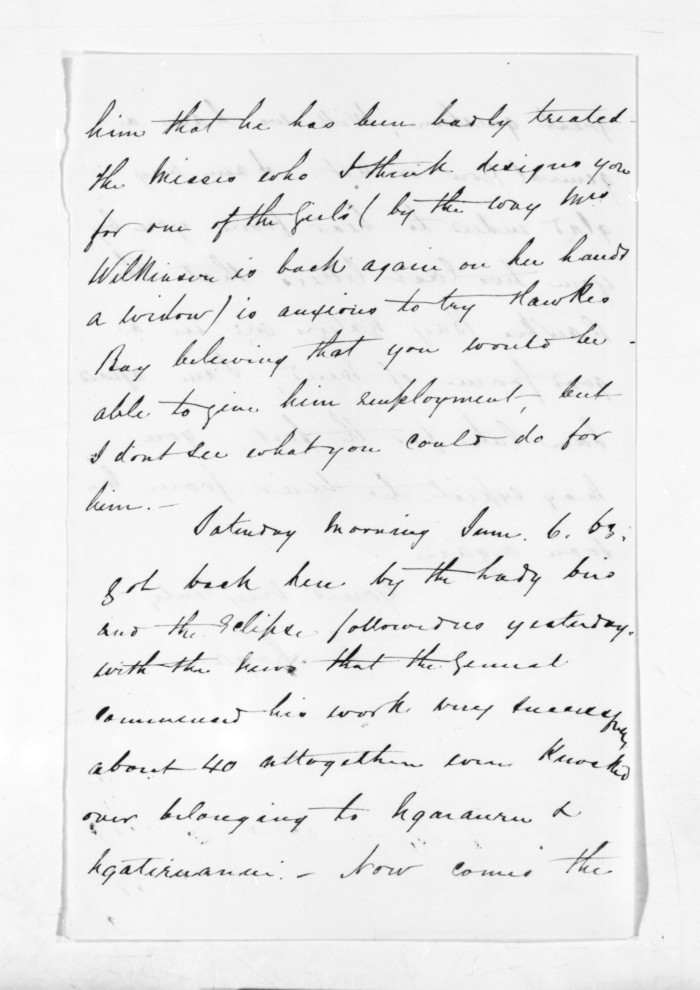 him that he has been badly treated -
the Missis who I think designs you
for one of the Girls (by the way Mrs
Wilkinson is back again on her hands
a widow) is anxious to try Hawkes
Bay believing that you would be -
able to give him employment, but
I dont see what you could do for
him. -
Saturday Morning June. 6. 63.
got back here by the Lady bird
and the Eclipse followed us yesterday.
with the news that the General
commenced his work very successfully
about 40 altogether were Knocked
over belonging to Ngarauru &
Ngatiruanui. - Now comes the